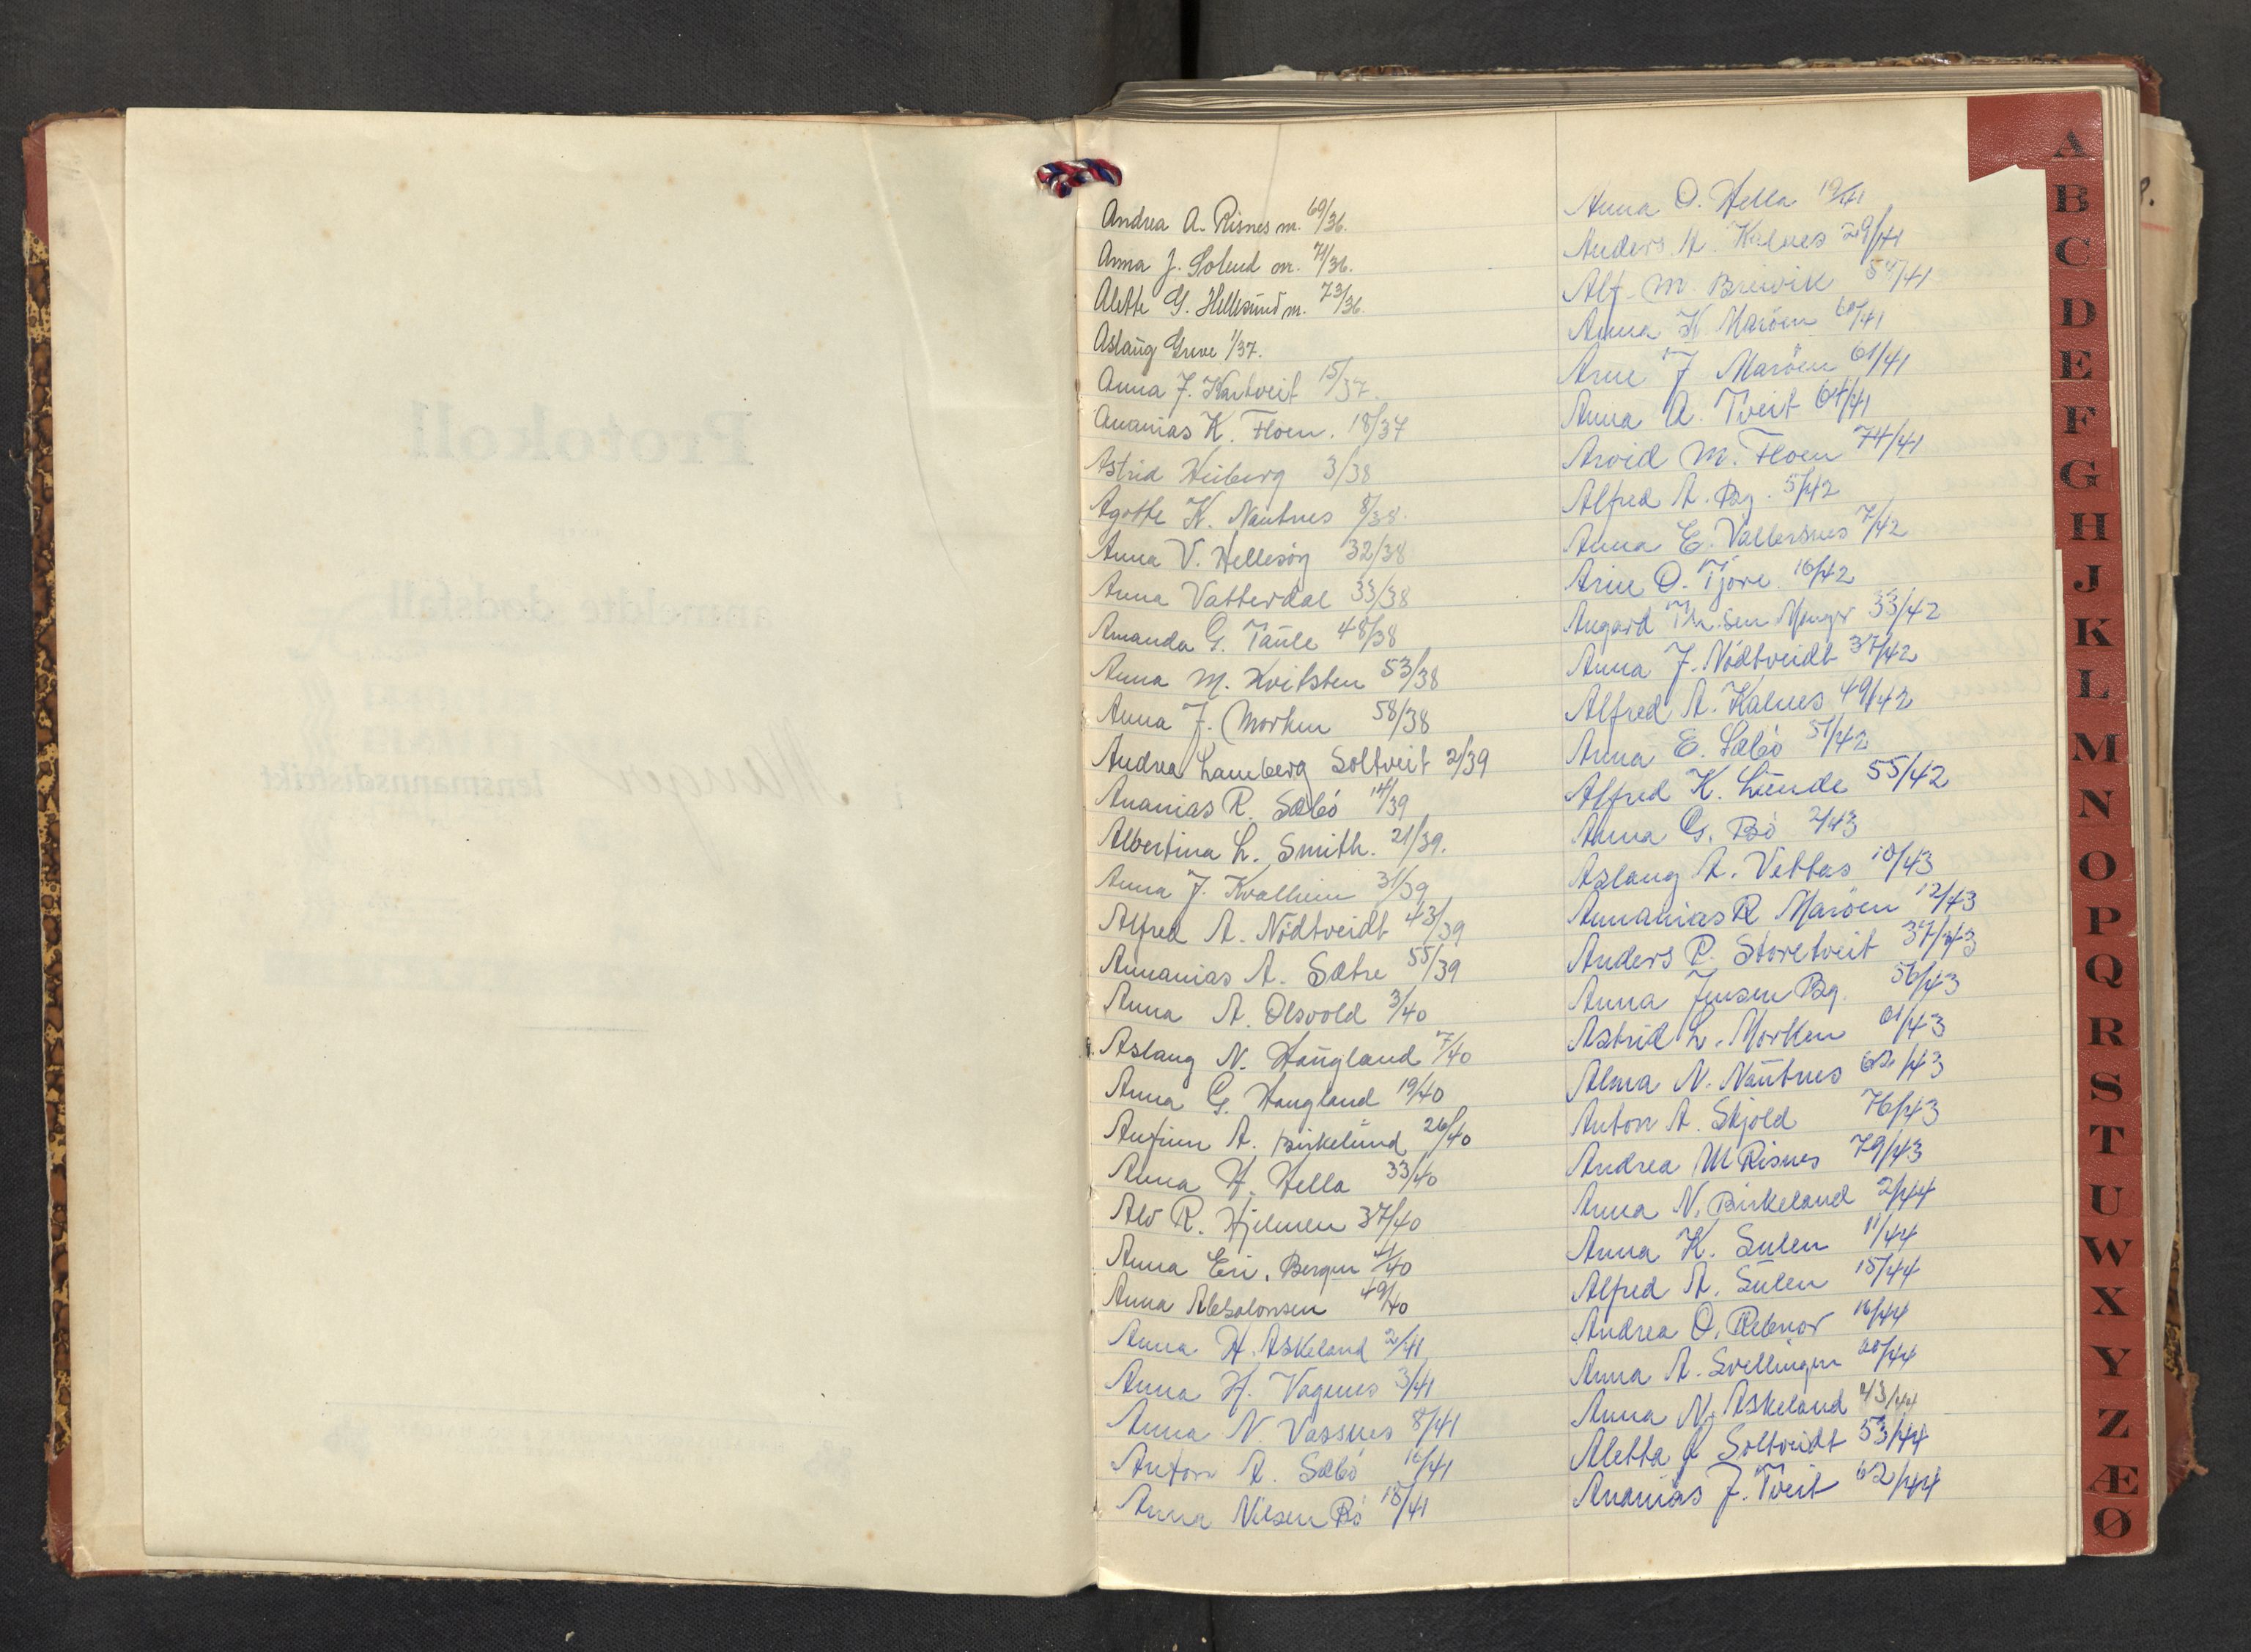 Andrea A. Risnes m. 69/36.
Anna J. Solend m. 71/36.
Alette G. Hellesund m. 73/36.
Aslaug Greve 1/37.
Anna J. Kartveit 15/37.
Ananias K. Floen. 18/37
Astrid Heiberg 3/38
Agothe K. Nautnes 8/38.
Anna V. Hellesöy 32/38
Anna Vatterdal 33/38
Amanda G. Taule 48/38
Anna M. Kvilsten 53/38
Anna J. Morken 58/38
Andrea Lamberg Soltveit 2/39
Ananias R. Sæbö 14/39
Albertina L. Smith. 21/39.
Anna J. Kvalheim 31/39
Alfred A. Nödtveidt 43/39
Annanias A. Sætre 55/39
Anna A. Olsvold 3/40
Aslaug N. Haugland 7/40
Anna G. Haugland 19/40
Anfinn A. Birkelund 26/40
Anna H. Hella 33/40
Alv R. Hjelmen 37/40
Anna Eri, Bergen 41/40
Anna Absalonsen 49/40
Anna H. Askeland 2/41
Anna H. Vagenes 3/41
Anna N. Vassnes 8/41
Anton A. Sæbö 16/41
Anna Nilsen Bö 18/41
Anna O. Hella 19/41
Anders A. Kalnes 29/41
Alf M. Breivik 58/41
Anna K Maröen 60/41
Arne J Maröen 61/41
Anna A. Tveit 64/41
Arvid M. Floen 74/41
Alfred A. Bg. 5/42
Anna E. Vallersnes 7/42
Arne O. Tjore 16/42
Augard Th.sen Manger 33/42
Anna J. Nödtveidt 37/42
Alfred A. Kalnes 49/42
Anna E. Sæbö 51/42
Alfred K. Lunde 55/42
Anna G. Bö 2/43
Aslaug A. Vettas 10/43
Annanias R Maröen 12/43
Anders P. Storetveit 37/43
Anna Jensen Bg. 56/43
Astrid L. Morken 61/43
Alma N. Nautnes 62/43
Anton A. Skjold 76/43
Andrea M Risnes 79/43
Anna N. Birkeland 2/44
Anna K. Sulen 11/44
Alfred A. Sulen 15/44
Andrea O. Rebnor 16/44
Anna A. Svellingen 20/44
Anna N. Askeland 43/44
Aletta J Soltveidt 53/44
Ananias J. Tveit 62/44
A
B
C
D
E
F
G
H
J
K
L
M
N
O
P
Q
R
S
T
U
W
X
Y
Z
Æ
Ø